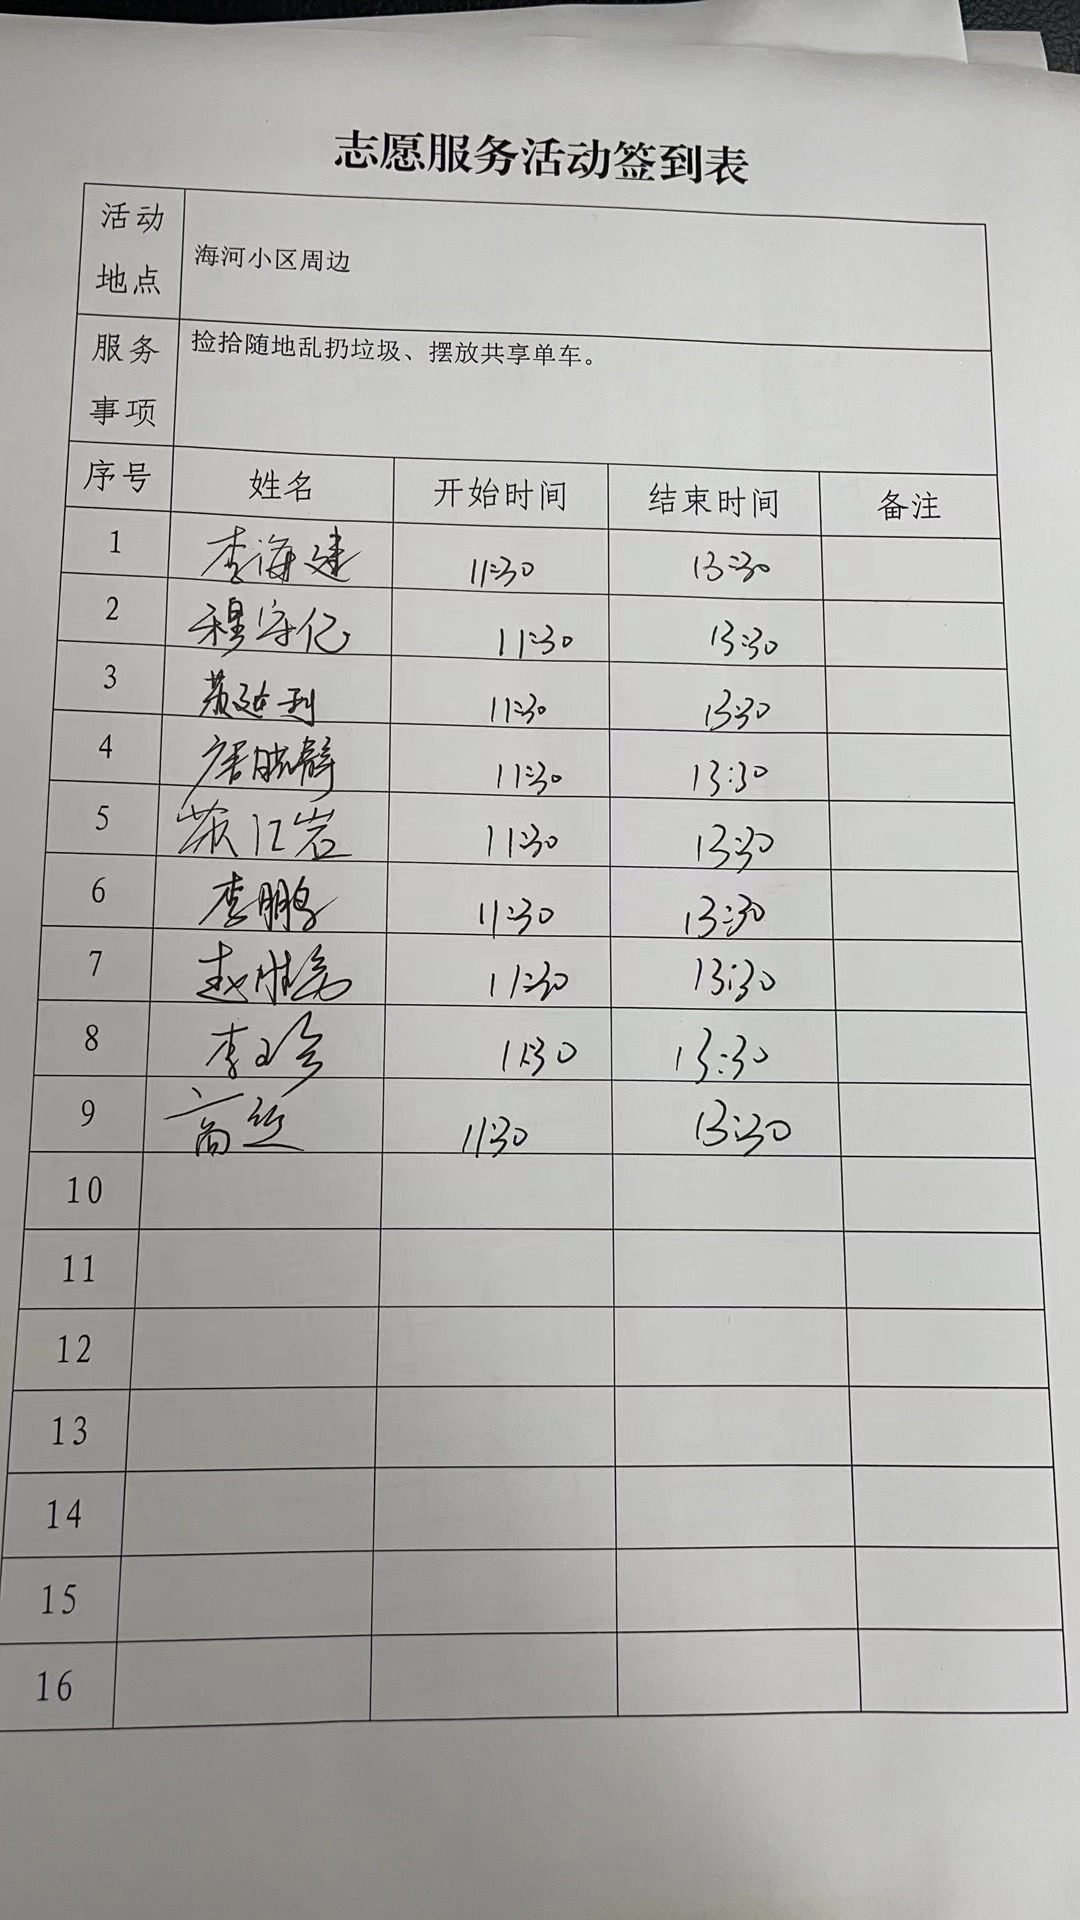 志愿服务活动签到表
活动地点 海河小区周边
服务事项 捡拾随地乱扔垃圾、摆放共享单车。
序号 姓名 开始时间 结束时间 备注
1 李海建 11:30 13:30
2 穆守亿 11:30 13:30
3 11:30 13:30
4 唐晓静 11:30 13:30
5 苏江岩 11:30 13:30
6 李鹏 11:30 13:30
7 赵胜 11:30 13:30
8 李珍 11:30 13:30
9 11:30 13:30
10
11
12
13
14
15
16